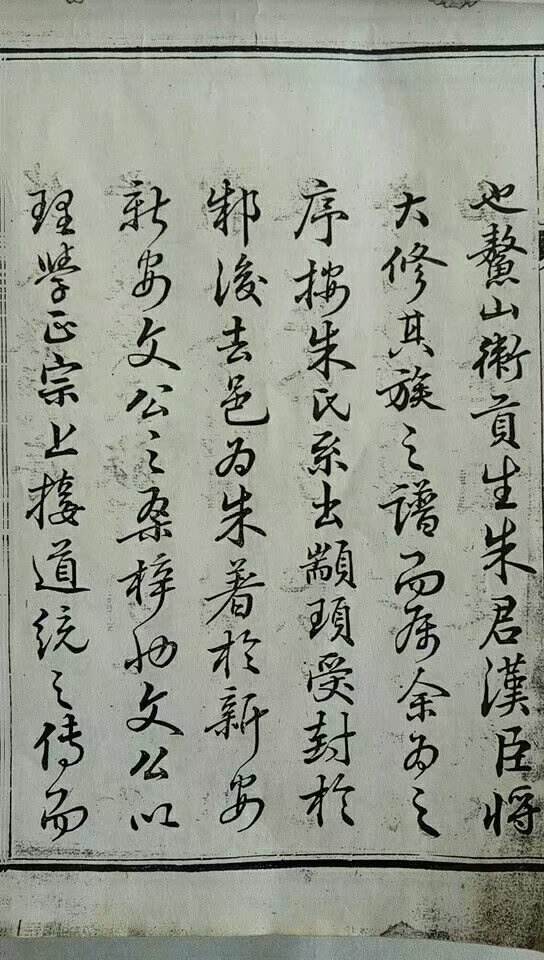 也鰲山衛貢生朱君漢臣將
大修其族之譜而屬余為之
序按朱氏系出顓頊受封於
邾後去邑為朱著於新安
新安文公之桑梓也文公以
理學正宗上接道統之傳而